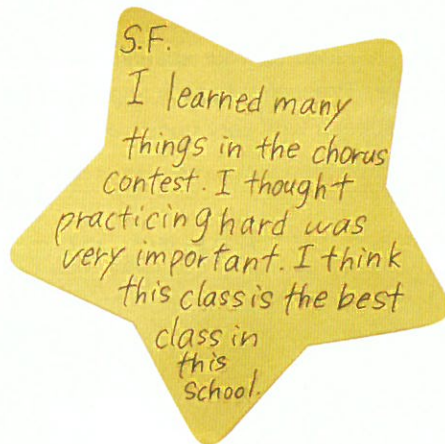 S.F.
I learned many
things in the chorus
contest. I thought
practicing hard was
very important. I think
this class is the best
class in
this
school.